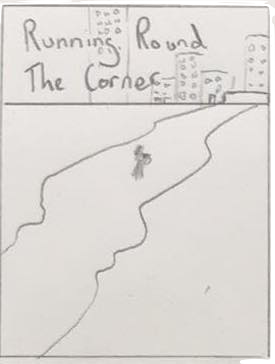 Running Round
The Corner